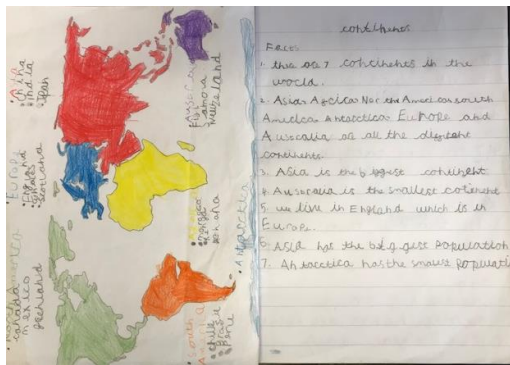 Asia
• China
• India
• Japan
Europe
• England
• Scotland
North America
• canada
• mexico
South
America
• chile
• Brazil
• Peru
Antarctica
continents
Facts
1. the are 7 continents in the
world.
2. Asia Africa Nor the Americas south
America Antarctica Europe and
Australia are all the
continents.
3. Asia is the biggest continent
4. Australia is the smallest continent
5 we live in England which is in
Europe.
6. Asia has the biggest population
7. Antarctica has the populati